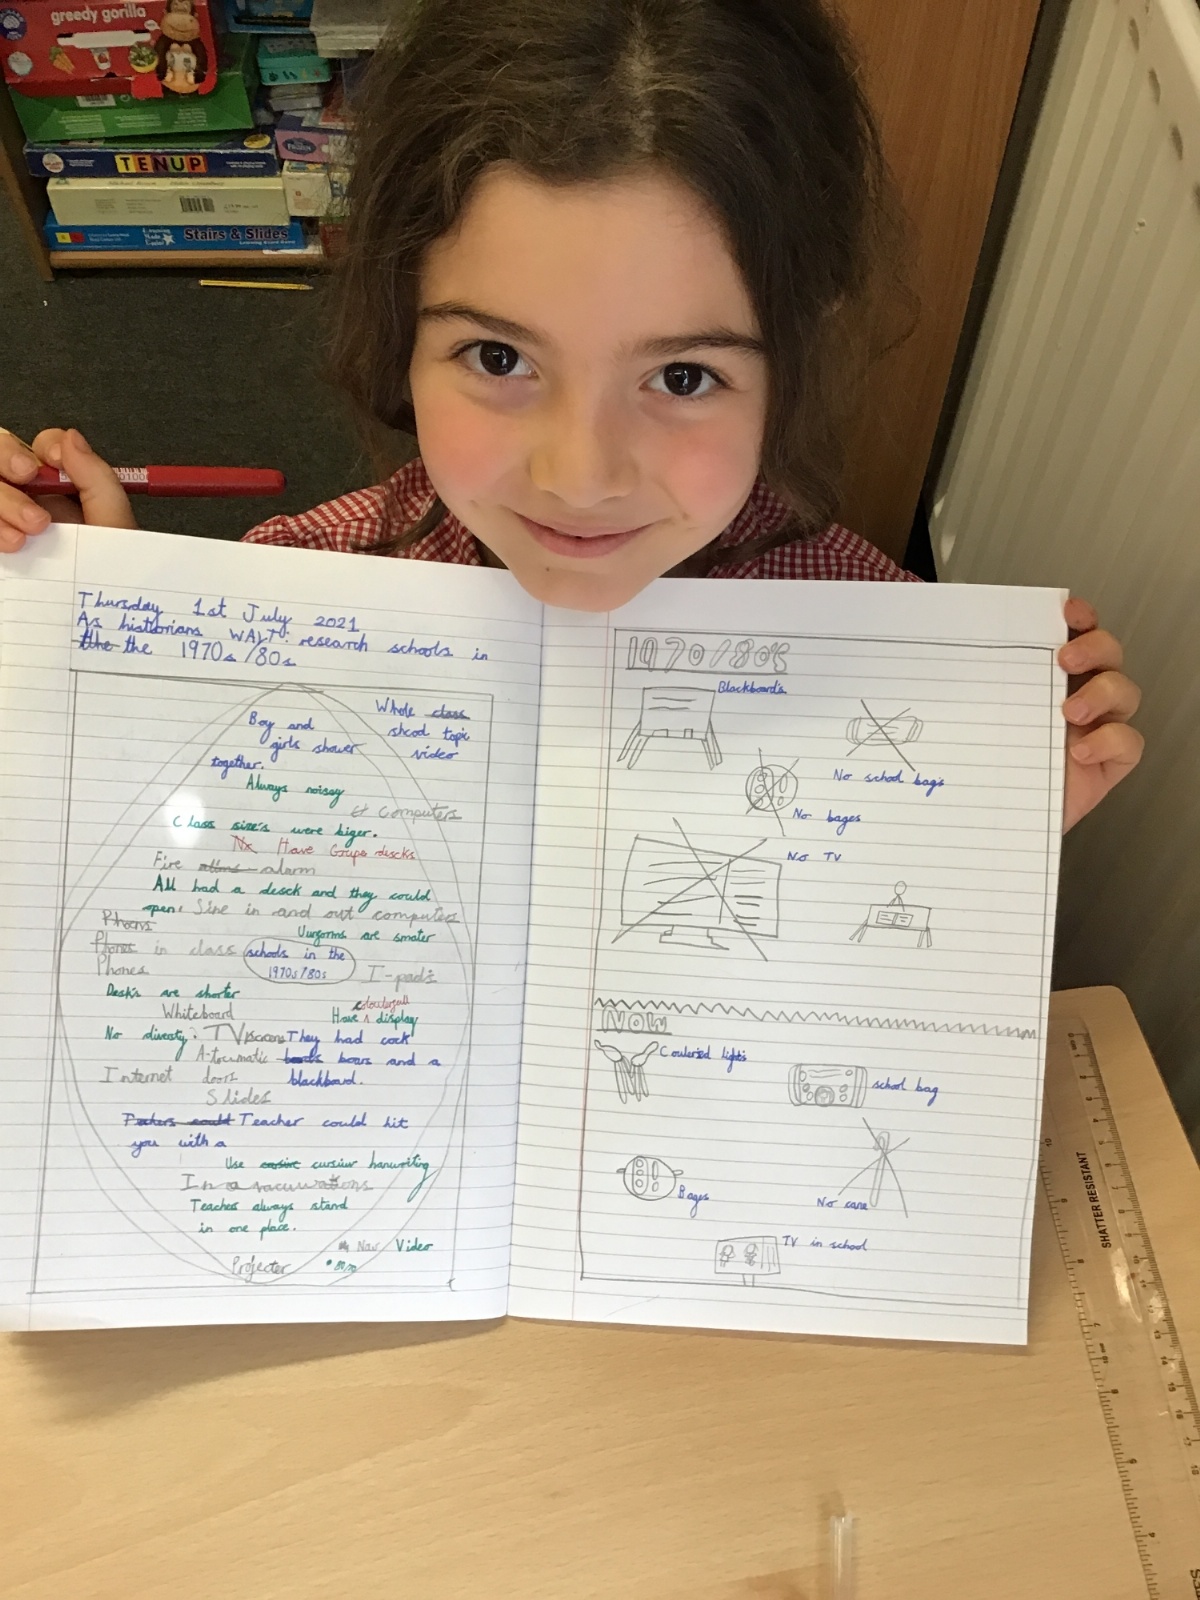 greedy gorilla
TENUP
FROZEN
Stairs & Slides
Thursday 1st July 2021
As historians WALT: research schools in
the the 1970s/80s
Boy and
girls shower
together.
Whole class
shcool topic
video
Always noisey
Computers
Class size's were biger.
Have Grups descks
Fire alarm
All had a desck and they could
open. Sine in and out computers
Phoens
Uurgorms are smater
Phones in class
schools in the
1970s/80s
Phones
I-pad's
Desk's are shorter
colourfull
Whiteboard
Have ^ display
No diversty.
TV screens
They had cork
A-toumatic
boars and a
Internet doors
blackboard.
Slides
Teachers could Teacher could hit
you with a
Use cursive cursiur hanwriting
Teacher always stand
in one place.
Now Video
Projecter
1970/80s
Blackboard's
No school bag's
No bages
No TV
NOW
Coulered light's
school bag
Bages
No cane
TV in school
SHATTER RESISTANT